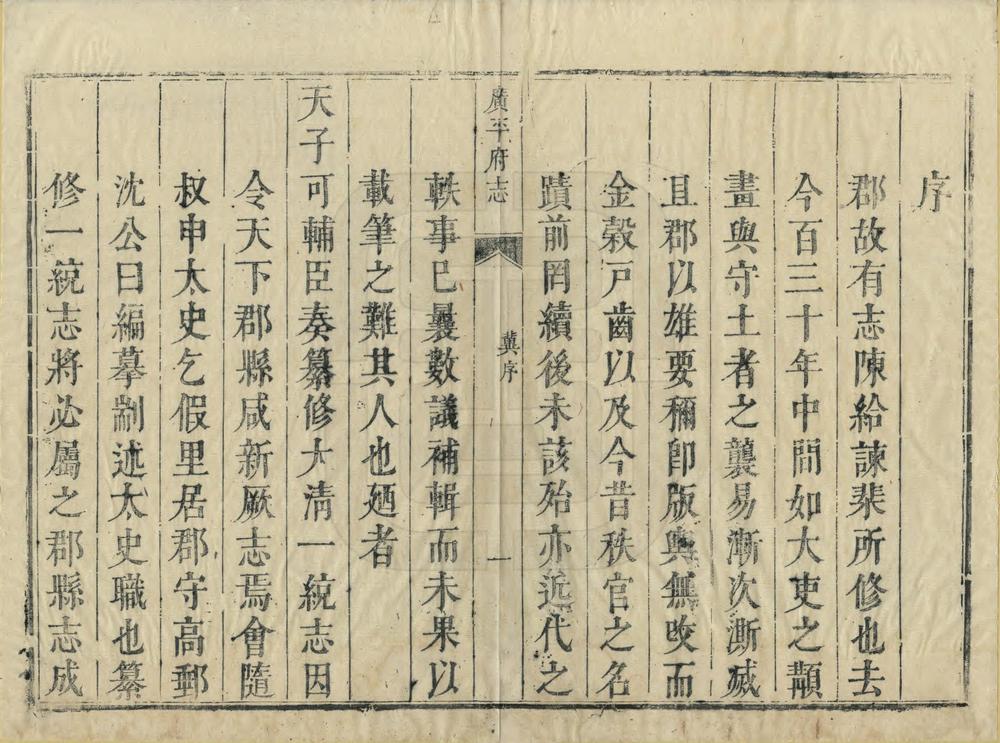 序
郡故有志陳給諫棐所修也去
今百三十年中間如大吏之顓
畫與守土者之襄易漸次漸滅
且郡以雄要稱即版輿無攺而
金榖戸齒以及今昔秩官之名
蹟前罔續後未該殆亦近代之
廣平府志
冀序
一
軼事已曩數議補輯而未果以
載筆之難其人也廼者
天子可輔臣奏纂修大淸一統志因
令天下郡縣咸新厥志焉會隨
叔申太史乞假里居郡守高郵
沈公曰編摹剬述太史職也纂
修一統志將必屬之郡縣志成